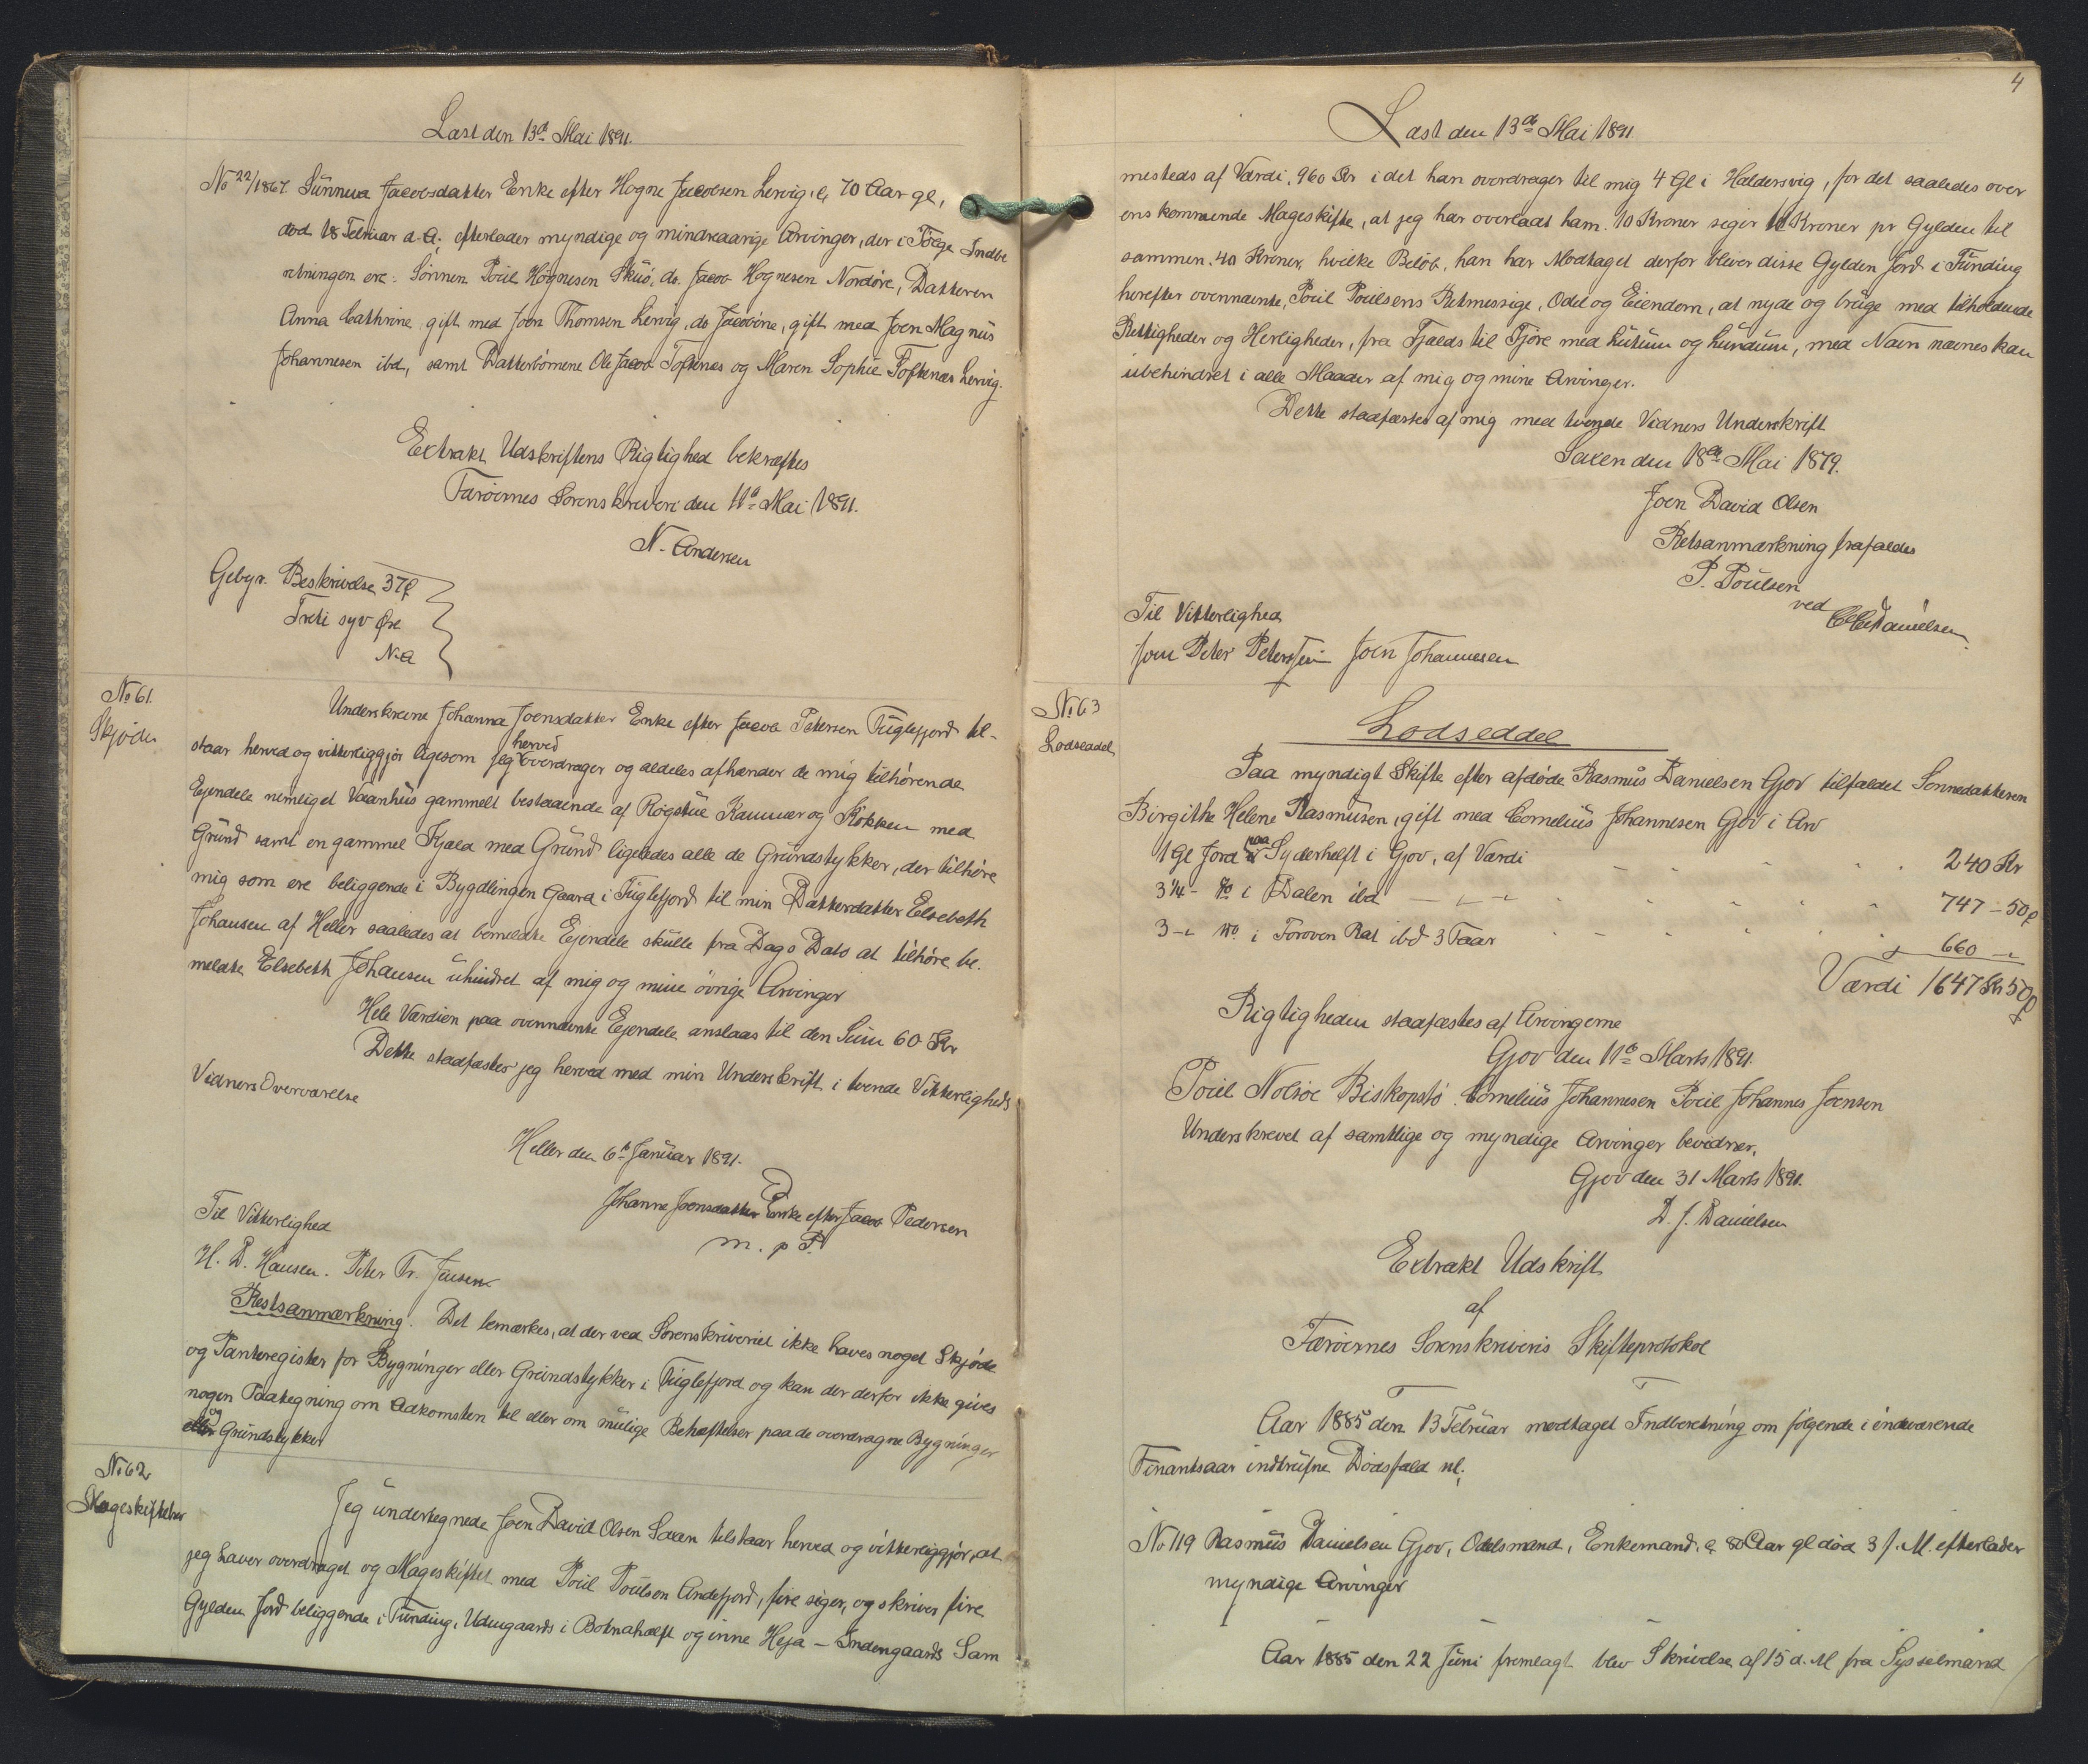 Læst den 13de Mai 1891.
No 22/1867. Sünneva Jacobsdatter Enke efter Hogne Jacobsen Lervig, 70 Aar gl,
død 18 Februar d. A; efterlader myndige og mindreaarige Arvinger, der i Følge Indbe
retningen ere: Sönnen Poül Högnesen Skuö, do. Jacob Hognesen Nordöre, Datteren
Anna Cathrine, gift med Joen Thomsen Lervig, do Jacobine, gift med Joen Magnüs
Johannesen ibd, samt Datterbörnene Ole Jacob Toftenæs og Maren Sophie Toftenæs Lervig.
Extrakt Udskriftens Rigtighed bekræftes
Færöernes Sorenskriveri den 11te Mai 1891.
N. Andersen
Gebyr. Beskrivelse 37 ø
Treti syv Øre
N.A
No 61.
Skjøde
Underskrevne Johanna Joensdatter Enke efter Jacob Petersen Füglefjord til-
staar herved og vitterliggjör ligesom jeg herved overdrager og aldeles afhænder de mig tilhörende
Ejendele nemligt Vaanhüs gammelt bestaaende af Rögstüe Kammer og Kökken med
Gründ samt en gammel Kjeld med Gründ ligeledes alle de Gründstykker, der tilhöre
mig som ere beliggende i Bygdlingen Gaara i Füglefjord til min Datterdatter Elsebeth
Johansen af Heller saaledes at bemeldte Ejendele skulle fra Dags Dato at tilhöre be.
meldte Elsebeth Johansen uhindret af mig og mine övrige Arvinger
Hele Værdien paa ovennævnte Ejendele anslaas til den Süm 60 Kr
Dette stadfæster jeg herved med min Underskrift i tvende Vitterligheds
Vidners Overværelse
Heller den 6te Januar 1891.
Johanne Joensdatter Enke efter Jacob Pedersen
m. p P.
Til Vitterlighed
H. D. Hansen. Peter Fr. Jensen
Restsanmærkning. Det bemærkes, at der ved Sorenskriveriet ikke haves noget Skjöde
og Panteregister for Bygninger eller Gründstykker i Füglefjord og kan der derfor ikke gives
nogen Paategning om Adkomsten til eller om mülige Behæftelser paa de overdragne Bygninger
eller og Gründstykker
No 62
Mageskiftebrev
Jeg ündertegnede Joen David Olsen Saxen tilstaar herved og vitterliggjör, at
jeg haver overdraget og Mageskiftet med Poül Poülsen Andefjord, fire siger, og skriver fire
Gylden Jord beliggende i Fünding, Udengaards i Botnahælft og inne Heja – Indengaards Sam
4
Læst den 13de Mai 1891.
mesteds af Værdi, 960 Kr i det han overdrager til mig 4 Gl i Haldersvig, for det saaledes over
ens kommende Mageskifte, at jeg har overladt ham. 10 Kroner siger 10 Kroner pr Gylden til
sammen. 40 Kroner, hvilke Belöb, han har Modtaget derfor bliver disse Gylden Jord i Fünding
herefter ovennævnte, Poül Poülsens Retmessige, Odel og Eiendom, at nyde og brüge med tilholdende
Rettigheder og Herligheder, fra Fjælds til Fjöre med lütüm og lündüm, med Navn nævnes kan
übehindret i alle Maader af mig og mine Arvinger.
Dette stadfæstes af mig med tvende Vidners Underskrift
Saxen den 18de Mai 1879.
Joen David Olsen
Retsanmærkning frafaldes
P. Poülsen
ved
Danielsen
Til Vitterlighed
Joen Peter Petersen Joen Johannesen
No 63
Lodseddel
Lodseddel
Paa myndigt Skifte efter afdøde Rasmüs Danielsen Gjov tilfaldet Sonnedatteren
Birgithe Helene Rasmüsen, gift med Cornelüs Johannesen Gjov i Arv
1 Gl Jord paa Syderhelft i Gjov, af Værdi 240 Kr
3 1/4 - do i Dalen ibd 747 – 50 ø
3 - do i Foroven Rat ibd 3 Faar 660
Værdi 1647 Kr 50 ø
Rigtigheden stadfæstes af Arvingerne
Gjov den 11te Marts 1891.
Poül Nolsöe Biskopstö. Cornelius Johannesen Poül Johannes Joensen
Underskrevet af samtlige og myndige Arvinger bevidner,
Gjov den 31 Marts 1891.
D. J. Danielsen
Extrakt Udskrift
af
Færöernes Sorenskriveris Skifteprotokol
Aar 1885 den 13 Februar modtaget Indberetning om fölgende i indeværende
Finantsaar indtrüfne Dödsfald nl;
No 119 Rasmüs Danielsen Gjov, Odelsmand, Enkemand, 80 Aar gl död 3 f. M. efterlader
myndige Arvinger
Aar 1885 den 22 Jüni fremlagt blev Skrivelse af 15 d. M fra Sysselmand